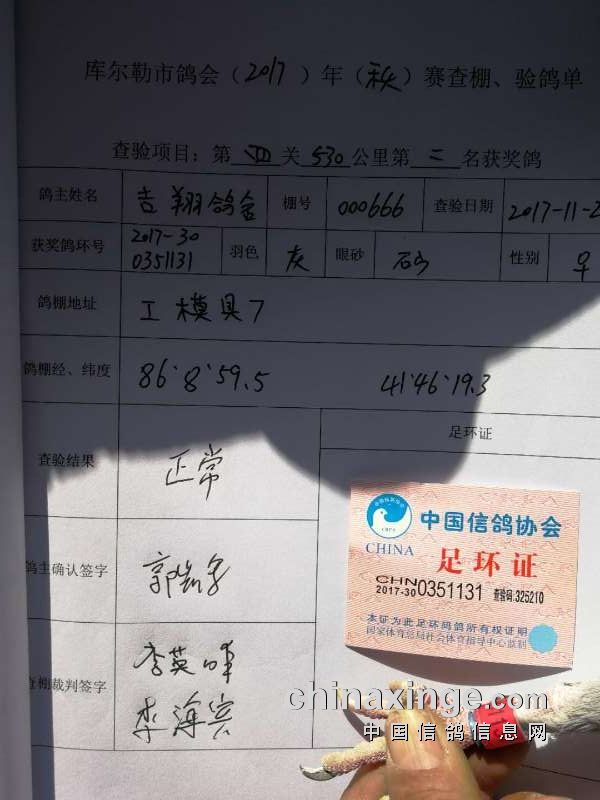 库尔勒市鸽会(2017)年(秋)赛查棚、验鸽单
查验项目：第 四 关 530 公里第 三 名获奖鸽
鸽主姓名 吉翔鸽舍 棚号 000666 查验日期 2017-11-2
获奖鸽环号 2017-30 0351131 羽色 灰 眼砂 石 性别
鸽棚地址 工模具7
鸽棚经、纬度 86°8'59.5 41°46'19.3
足环证
查验结果 正常
中国信鸽协会
CHINA
足环证
CHN
2017-30 0351131 查验码:325210
本证为此足环码鸽所有权证明
国家体育总局社会体育指导中心监制
鸽主确认签字
查棚裁判签字 李英
李海宾
chinaxinge.com
中国信鸽信息网